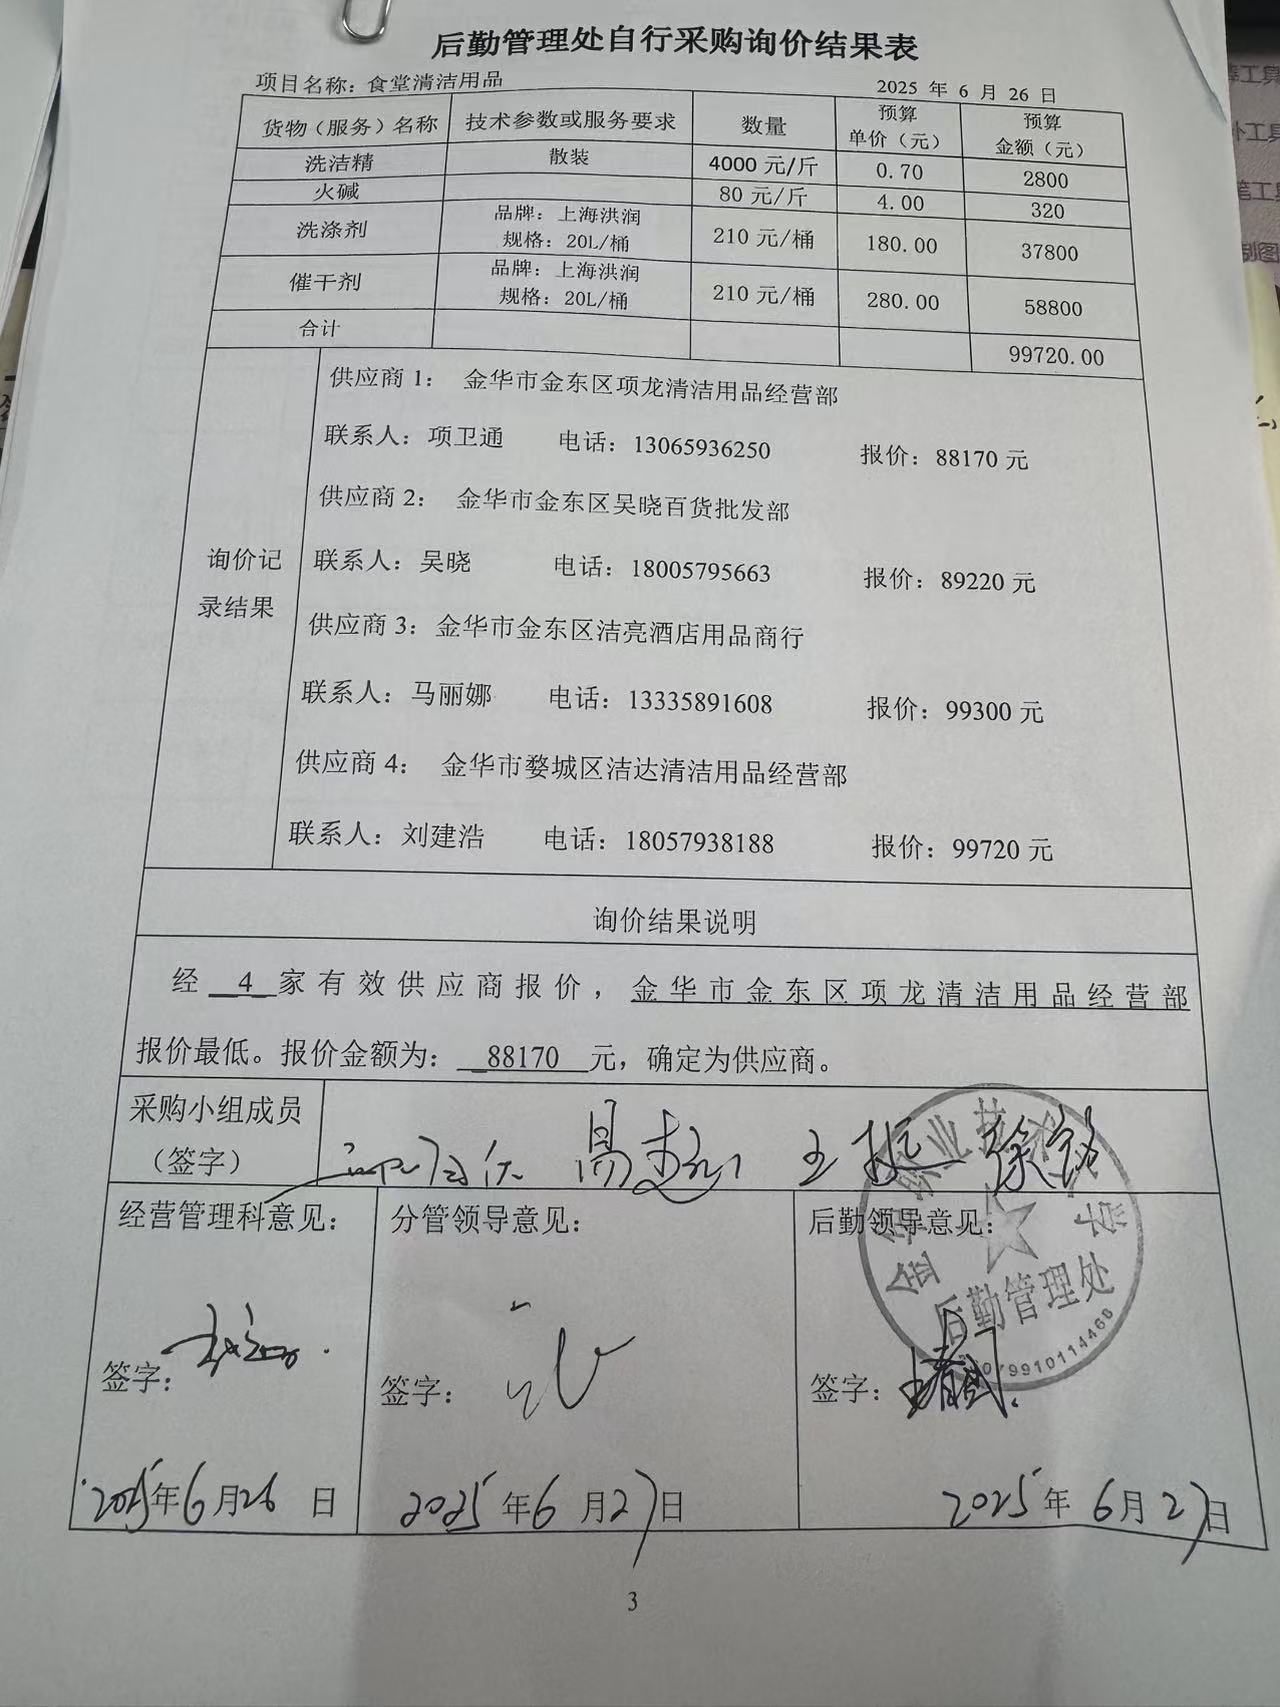 后勤管理处自行采购询价结果表
项目名称：食堂清洁用品 2025 年 6 月 26 日
货物（服务）名称 技术参数或服务要求 数量 预算单价（元） 预算金额（元）
洗洁精 散装 4000 元/斤 0.70 2800
火碱 80 元/斤 4.00 320
洗涤剂 品牌：上海洪润 规格：20L/桶 210 元/桶 180.00 37800
催干剂 品牌：上海洪润 规格：20L/桶 210 元/桶 280.00 58800
合计 99720.00
询价记录结果
供应商 1： 金华市金东区项龙清洁用品经营部
联系人：项卫通 电话：13065936250 报价：88170 元
供应商 2： 金华市金东区吴晓百货批发部
联系人：吴晓 电话：18005795663 报价：89220 元
供应商 3：金华市金东区洁亮酒店用品商行
联系人：马丽娜 电话：13335891608 报价：99300 元
供应商 4： 金华市婺城区洁达清洁用品经营部
联系人：刘建浩 电话：18057938188 报价：99720 元
询价结果说明
经 4 家有效供应商报价，金华市金东区项龙清洁用品经营部
报价最低。报价金额为：88170 元，确定为供应商。
采购小组成员
（签字）
经营管理科意见： 分管领导意见： 后勤领导意见：
后勤管理处
签字： 签字： 签字：
2025年6月26 日 2025 年6 月27日 2025 年 6月27日
3